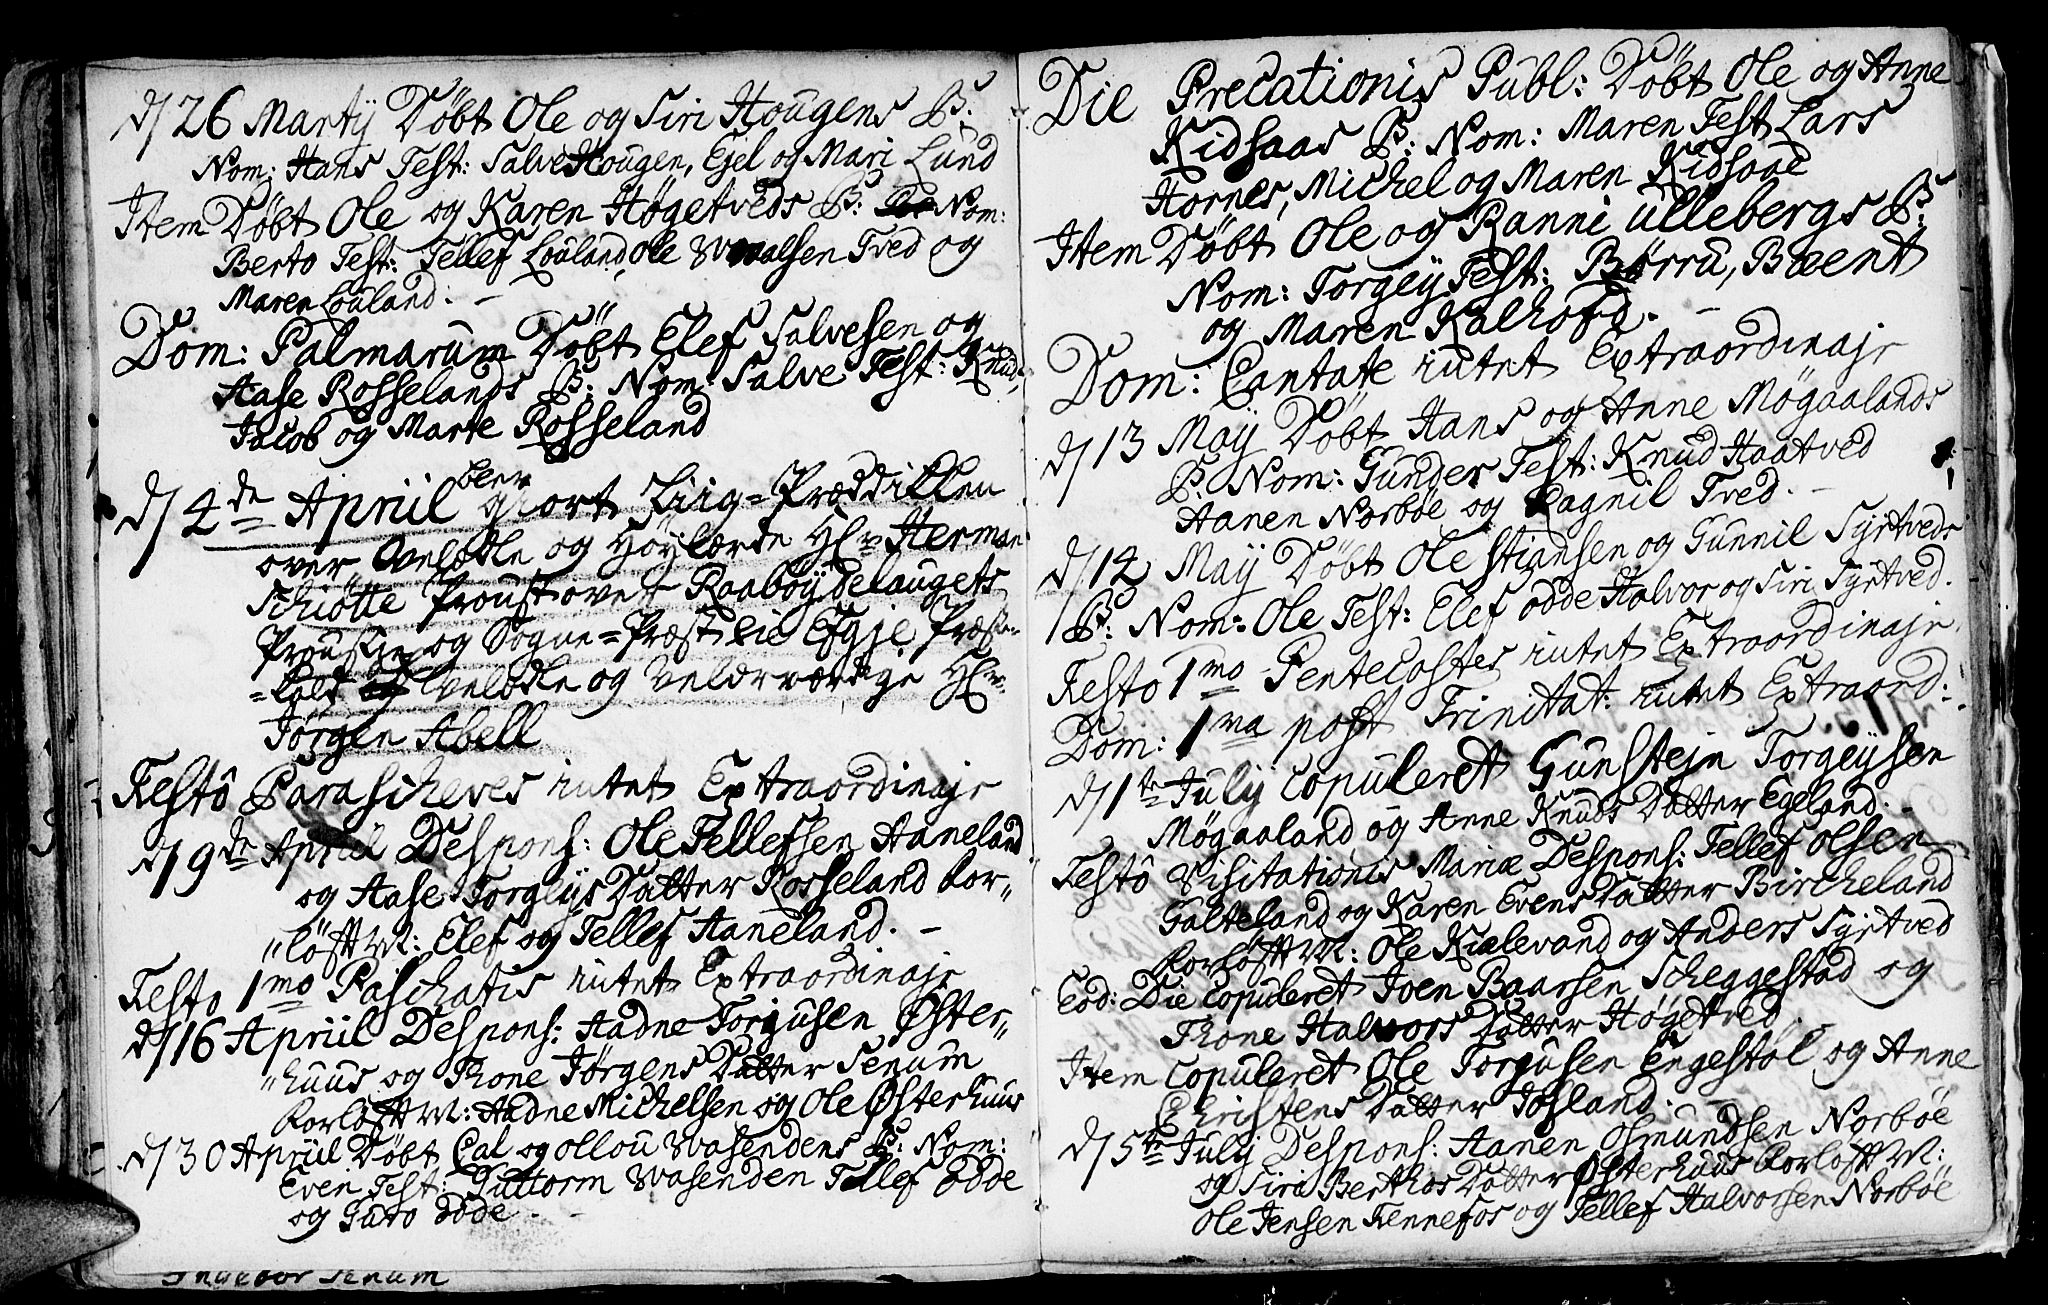 d/ 26 Martij Döbt Ole og Siri Hougens B:
Nom: Hans Test: Salve Hougen, Ejel og Mari Lund
Item Döbt Ole og Karen Høgetveds B: Nom:
Berto Test: Tellef Louland, Ole Tved og
Maren Louland. –
Dom: Palmarum Döbt Elef Salvesen og
Aase Rosselands B: Nom: Salve Test: Knud,
Jacob og Marte Rosseland
d/ 4de Apriil blev giort Liig=Præddiken
over Velædle og Höylærde Hr. Herman
Schiötte Proust over Raabøydelaugets
Proustje og Sogne=Præst til Efgje Præste-
=Kald Velædle og Velærværdige Hr.
Jørgen Abell
Festô Parascheves intet Extraordinajr
d/ 9de Apriil Despons: Ole Tellefsen Aaneland
og Aase Torgeÿs Datter Rosseland For=
"löfft M: Elef og Tellef Aaneland. –
Festo 1mo Paschatis intet Extraordinajr
d/ 16 Apriil Despons: Aadne Torgusen Øster=
"huus og Thone Jørgens Datter Senum
Forlöfft M: Aadne Michelsen og Ole Østerhuus
d/ 30 Apriil Döbt Cal og Ollou Vasendens B: Nom:
Even Test: Guttorm Vasenden Tellef Odde
og Guro Odde. –
Ingebor Senum
Die Precationis Publ: Döbt Ole og Anne
Kidsaas B: Nom: Maren Test Lars
Hornes, Michel og Maren Kidsaae
Item Döbt Ole og Ranni Ullebergs B:
Nom: Torgey Test: Børru, Baent
og Maren Kalhofd. –
Dom: Cantate intet Extraordinajr
d/ 13 Maij Döbt Hans og Anne Møgaalands
B. Nom: Gunder Test: Knud Haatved
Aanen Norbøe og Ragnil Tved. –
d/ 14 Maij Döbt Ole Stiansen og Gunnil Syrtveds
B: Nom: Ole Test: Elef Odde Halvor og Siri Syrtved.
Festo 1mo Pentecostes intet Extraordinajr
Dom: 1ma post Trinitat: intet Extraord:
d/ 1te Julij Copuleret Gunstejn Torgeysen
Møgaaland og Anne Knuds Datter Egeland. –
Festô Visitationis Mariæ Despons: Tellef Olsen
Galteland og Karen Evens Datter Bircheland
Forlöfft M: Ole Kialevand og Anders Syrtved
Eod: Die Copuleret Joen Baarsen Scheggestad og
Thone Halvors Datter Høgetved.
Item Copuleret Ole Torgusen Engestøl og Anne
Christens Datter Josland. –
d/ 5te Julij Despons: Aanen Osmundsen Norbøe
og Siri Berthos Datter Østerhuus Forlöfft M:
Ole Jensen Fennefos og Tellef Halvorsen Norbøe